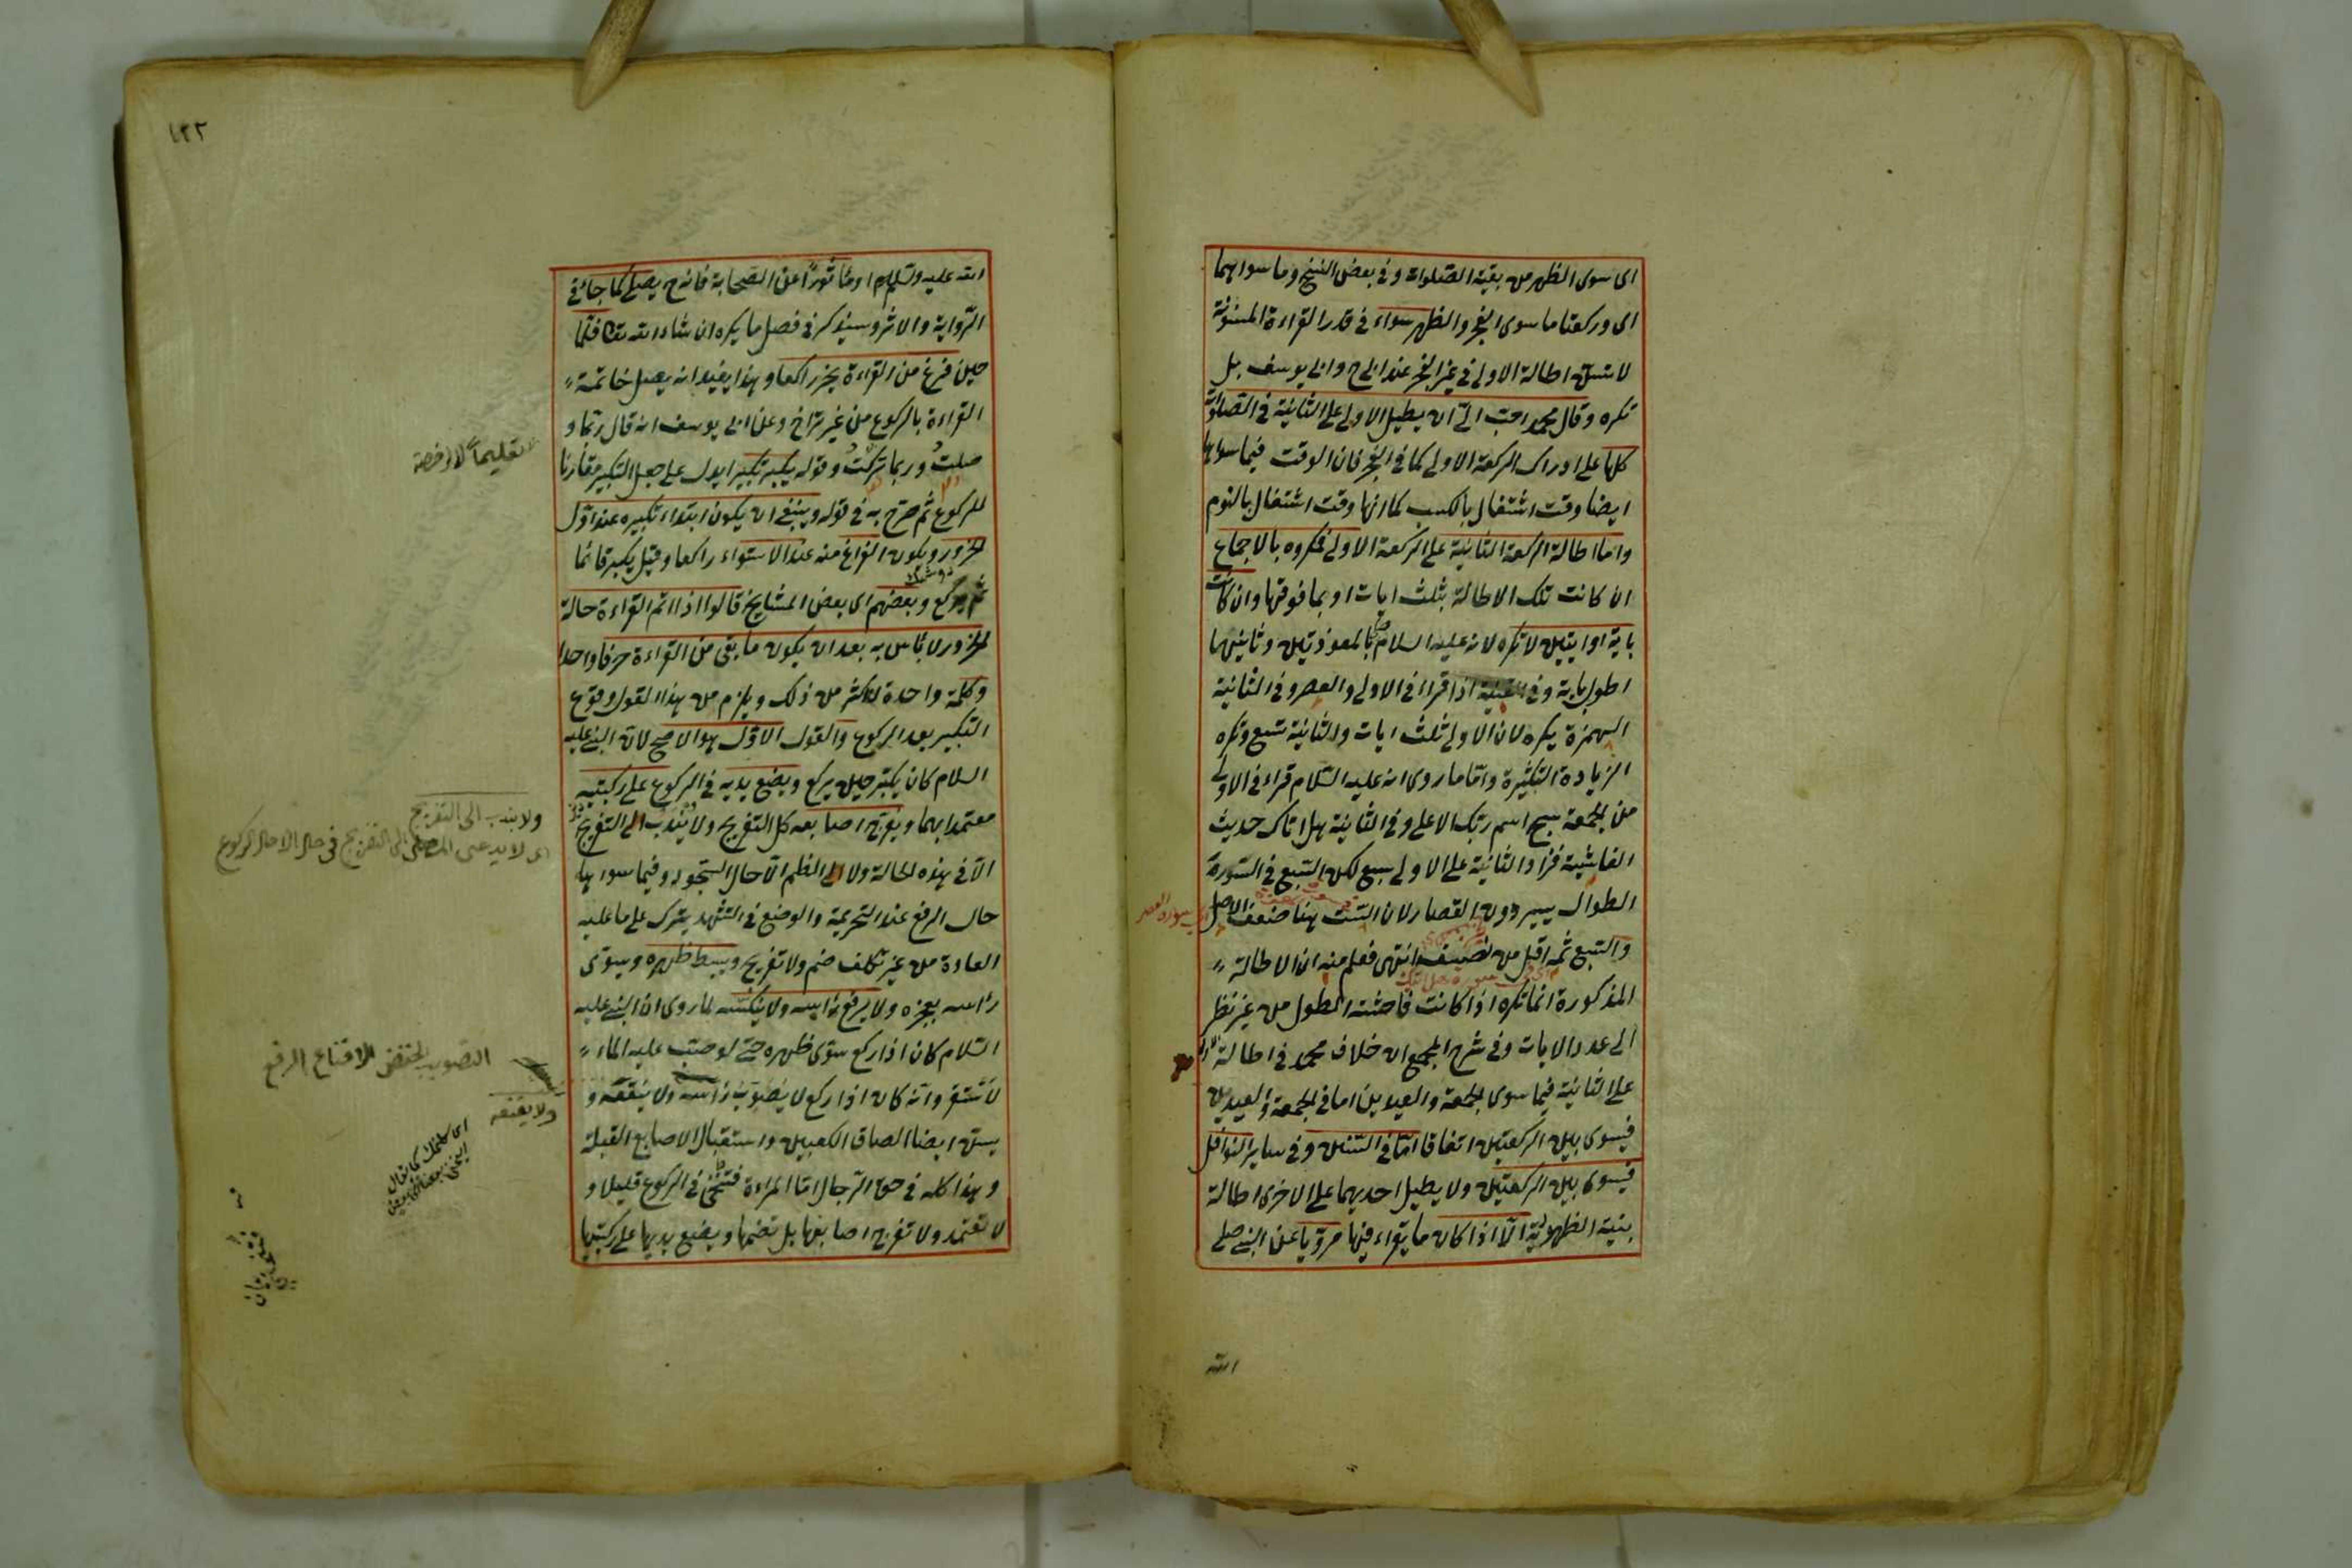 اى سوى الظهر من بقية الصلوات وفى بعض النسخ وما سواهما
اى وركعتا ما سوى الفجر والظهر سواء فى قدر القراءة المسنونة
لا تسن اطالة الاولى فى غير الفجر عند ابى ح وابى يوسف بل
تكره وقال محمد احب الىّ ان يطيل الاولى على الثانية فى الصلوات
كلها على ادراك الركعة الاولى كما فى الفجر فان الوقت فيما سواها
ايضا وقت اشتغال بالكسب كما انها وقت اشتغال بالنوم
واما اطالة الركعة الثانية على الركعة الاولى فمكروه بالاجماع
ان كانت تلك الاطالة بثلث ايات او بما فوقها وان كانت
باية او ايتين لا تكره لانه عليه السلام بالمعوذتين وثانيهما
اطول باية وفى القنية اذا قراء فى الاولى والعصر وفى الثانية
الهمزة يكره لان الاولى ثلث ايات والثانية تسع وتكره
الزيادة الكثيرة واما ما روى انه عليه السلام قراء فى الاولى
من الجمعة سبح اسم ربك الاعلى وفى الثانية هل اتاك حديث
الغاشية فزاد الثانية على الاولى بسبع لكن السبع فى السورة
الطوال يسير دون القصار لان الست هنا ضعف الاصل
والسبع ثمه اقل من نصفه انتهى فعلم منه ان الاطالة
المذكورة انما تكره اذا كانت فاحشة الطول من غير نظر
الى عدد الايات وفى شرح المجمع ان خلاف محمد فى اطالة
على الثانية فيما سوى الجمعة والعيدين اما فى الجمعة والعيدين
فيسوى بين الركعتين اتفاقا امّا فى السنن وفى سائر النوافل
فيسوى بين الركعتين ولا يطيل احديهما على الاخرى اطالة
بنية الظهر الّا اذا كان ما يقراء فيها مرويا عن النبى صلى
الله
١٢٢
الله عليه وسلم او ماثورا عن الصحابة فانه ح يصلى كما جاء فى
الرواية والاثر وسيذكر فى فصل ما يكره ان شاء الله تعا فلمّا
حين فرغ من القراءة يخر راكعا وهذا يفيد انه يصل خاتمة
القراءة بالركوع من غير تراخ وعن ابى يوسف انه قال ربما و
صلت وربما تركت وقوله يكبر تكبيرا يدل على جعل التكبير مقارنا
للركوع ثم صرح به فى قوله وينبغى ان يكون ابتداء تكبيره عند اوّل
الخرور ويكون الفراغ منه عند الاستواء راكعا وقيل يكبر قائما
ثم يركع وبعضهم اى بعض المشايخ قالوا اذا اتم القراءة حالة
الخرور لا باس به بعد ان يكون ما بقى من القراءة حرفا واحدا
وكلمة واحدة لا اكثر من ذلك ويلزم من هذا القول وقوع
التكبير بعد الركوع والقول الاوّل هو الاصح لان النبى عليه
السلام كان يكبر حين يركع ويضع يديه فى الركوع على ركبتيه
معتمدا بهما ويفرج اصابعه كل التفريج ولا يندب الى التفريج
الّا فى هذه الحالة ولا الى الضم الّا حال السجود وفيما سواها
حال الرفع عند التحريمة والوضع فى التشهد يترك على ما عليه
العادة من غير تكلف ضم ولا تفريج ويبسط ظهره ويسوى
رأسه بعجزه ولا يرفع رأسه ولا ينكسه لما روى ان النبى عليه
السلام كان اذا ركع سوّى ظهره حتى لو صب عليه الماء
لاستقر وانه كان اذا ركع لا يصوّب رأسه ولا يقنعه و
يسن ايضا الصاق الكعبين واستقبال الاصابع القبلة
وهذا كله فى حق الرجال امّا المراءة فتنحنى فى الركوع قليلا و
لا تعتمد ولا تفرج اصابعها بل تضمها وتضع يديها على ركبتيها
تعليما لا رخصة
ولا يندب الى التفريج
اى لا يدعى المصلى الى التفريج فى حال الا حال الركوع
التصويب الخفض الاقناع الرفع
ولا يقنعه